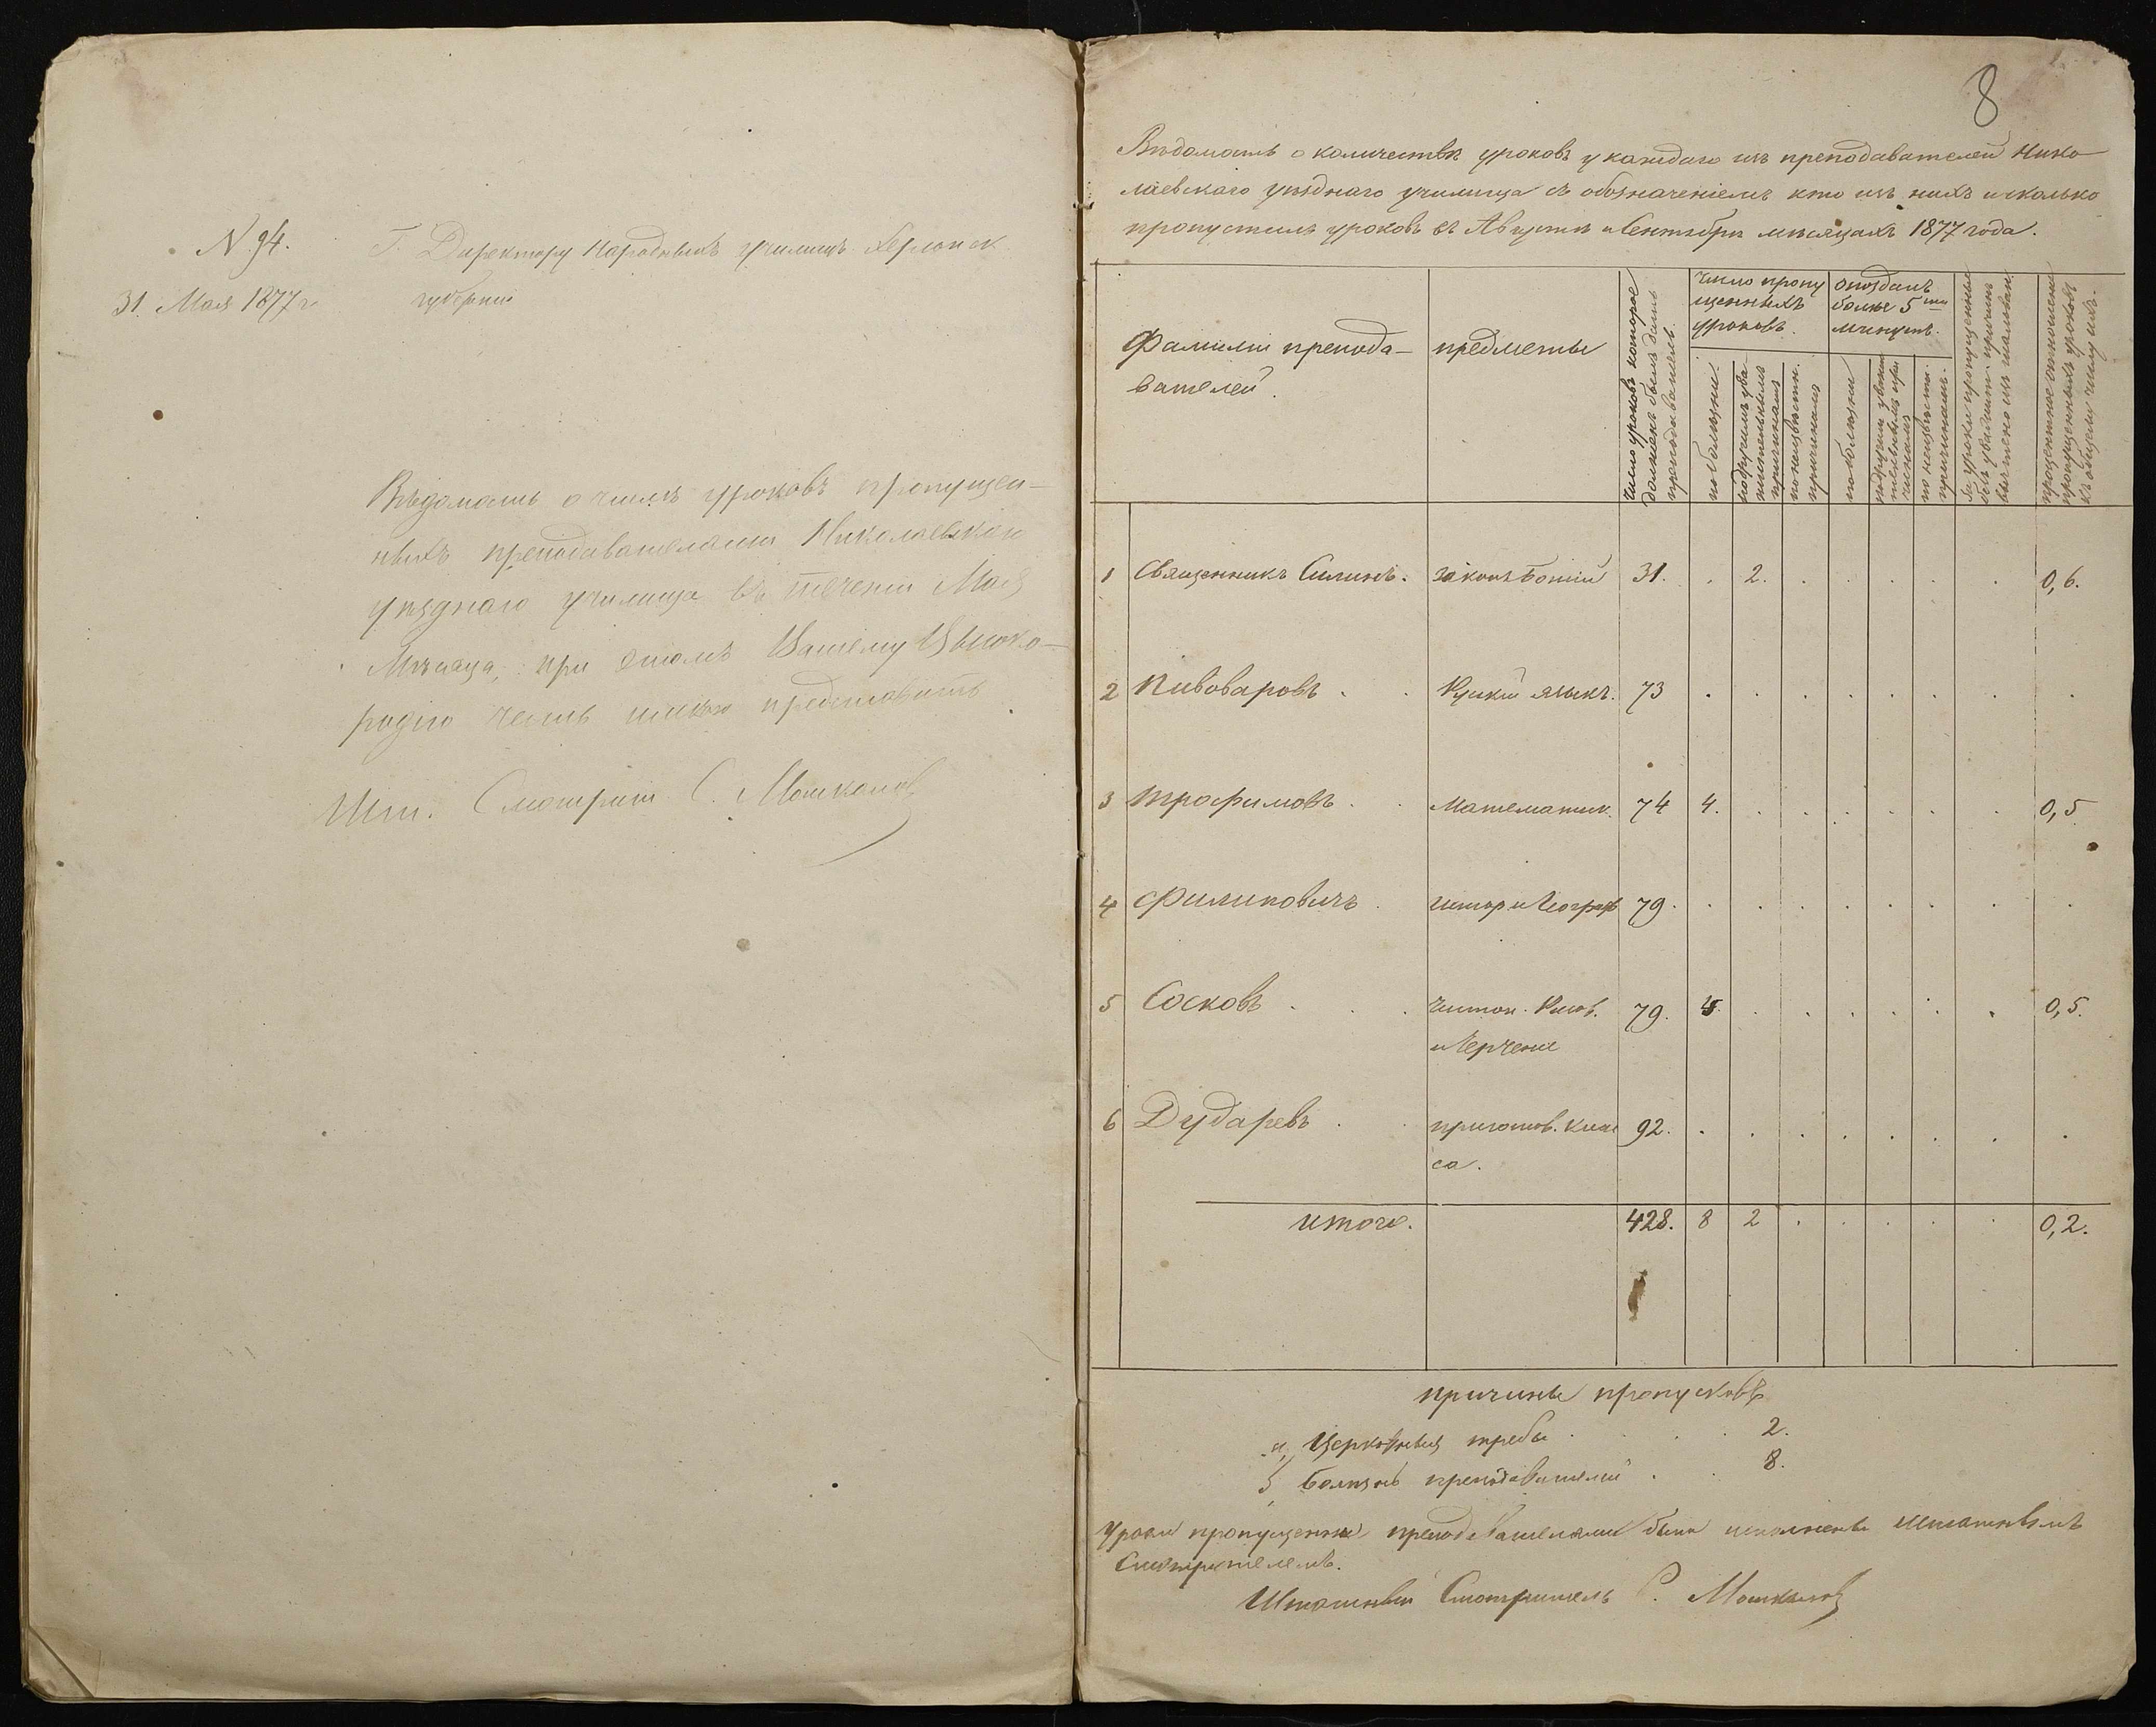 N. 94.
31. Мая 1877 г.
Г. Директору Народныхъ училищъ Херсонск.
губерніи
Вѣдомость о числѣ уроковъ пропущен-
ныхъ преподавателями Николаевскаго
уѣзднаго училища въ теченіи Мая
Мѣсяца, при этомъ Вашему Высоко-
родію честь имѣю представить
Шт. Смотрит. С. Мошкалов
8
Вѣдомость о количествѣ уроковъ у каждаго изъ преподавателей Нико-
лаевскаго уѣзднаго училища съ обозначеніемъ кто изъ нихъ и сколько
пропустилъ уроковъ въ Августѣ и Сентябрѣ мѣсяцахъ 1877 года.
Фамиліи препода-
вателей.
предметы
число уроковъ которое
долженъ былъ дать
преподаватель.
Число пропу
щенныхъ
уроковъ.
по болѣзни.
по другимъ ува
жительнымъ
причинамъ
по неизвѣстн.
причинамъ
опоздалъ
болѣе 5ти
минутъ.
по болѣзни
по другим уважи
тельнымъ при
чинамъ
по неизвѣстн.
причинамъ.
За уроки пропущенные
безъ уважит. причинъ
вычтено изъ жалован.
процентное отношеніе
пропущенныхъ уроковъ
къ общему числу ихъ.
1 Священникъ Силинъ. законъ Божій 31. . 2. . . . . . 0,6.
2 Пивоваровъ . . Рускій языкъ. 73 . . . . . . . .
3 Трофимовъ . . Математик. 74 4. . . . . . . 0,5
4 Филиповичъ . истор и Географ 79. . . . . . . . .
5 Сосковъ . . . Чистоп. Рисов. 79. 4. . . . . . . 0,5.
и Черченіе
6 Дударевъ . . приготов. клас 92. . . . . . . . .
са.
итого. 428. 8 2 . . . . . 0,2.
причины пропусковъ
а, Церковныя требы . . . 2.
б, Болѣзнь преподавателей . . 8.
Уроки пропущенные преподавателями были исполнены Штатнымъ
Смотрителемъ.
Штатный Смотритель С. Мошкалов